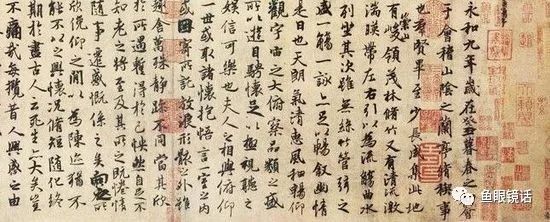 永和九年歲在癸丑暮春之初會
于會稽山陰之蘭亭脩稧事
也群賢畢至少長咸集此地
有崇山峻領茂林脩竹又有清流激
湍暎帶左右引以為流觴曲水
列坐其次雖無絲竹管弦之
盛一觴一詠亦足以暢敘幽情
是日也天朗氣清惠風和暢仰
觀宇宙之大俯察品類之盛
所以遊目騁懷足以極視聽之
娛信可樂也夫人之相與俯仰
一世或取諸懷抱悟言一室之內
或因寄所託放浪形骸之外雖
趣舍萬殊靜躁不同當其欣
於所遇暫得於己怏然自足不
知老之將至及其所之既惓情
隨事遷感慨係之矣向之所
欣俛仰之閒以為陳迹猶不
能不以之興懷況脩短隨化終
期於盡古人云死生亦大矣豈
不痛哉每攬昔人興感之由
鱼眼镜话